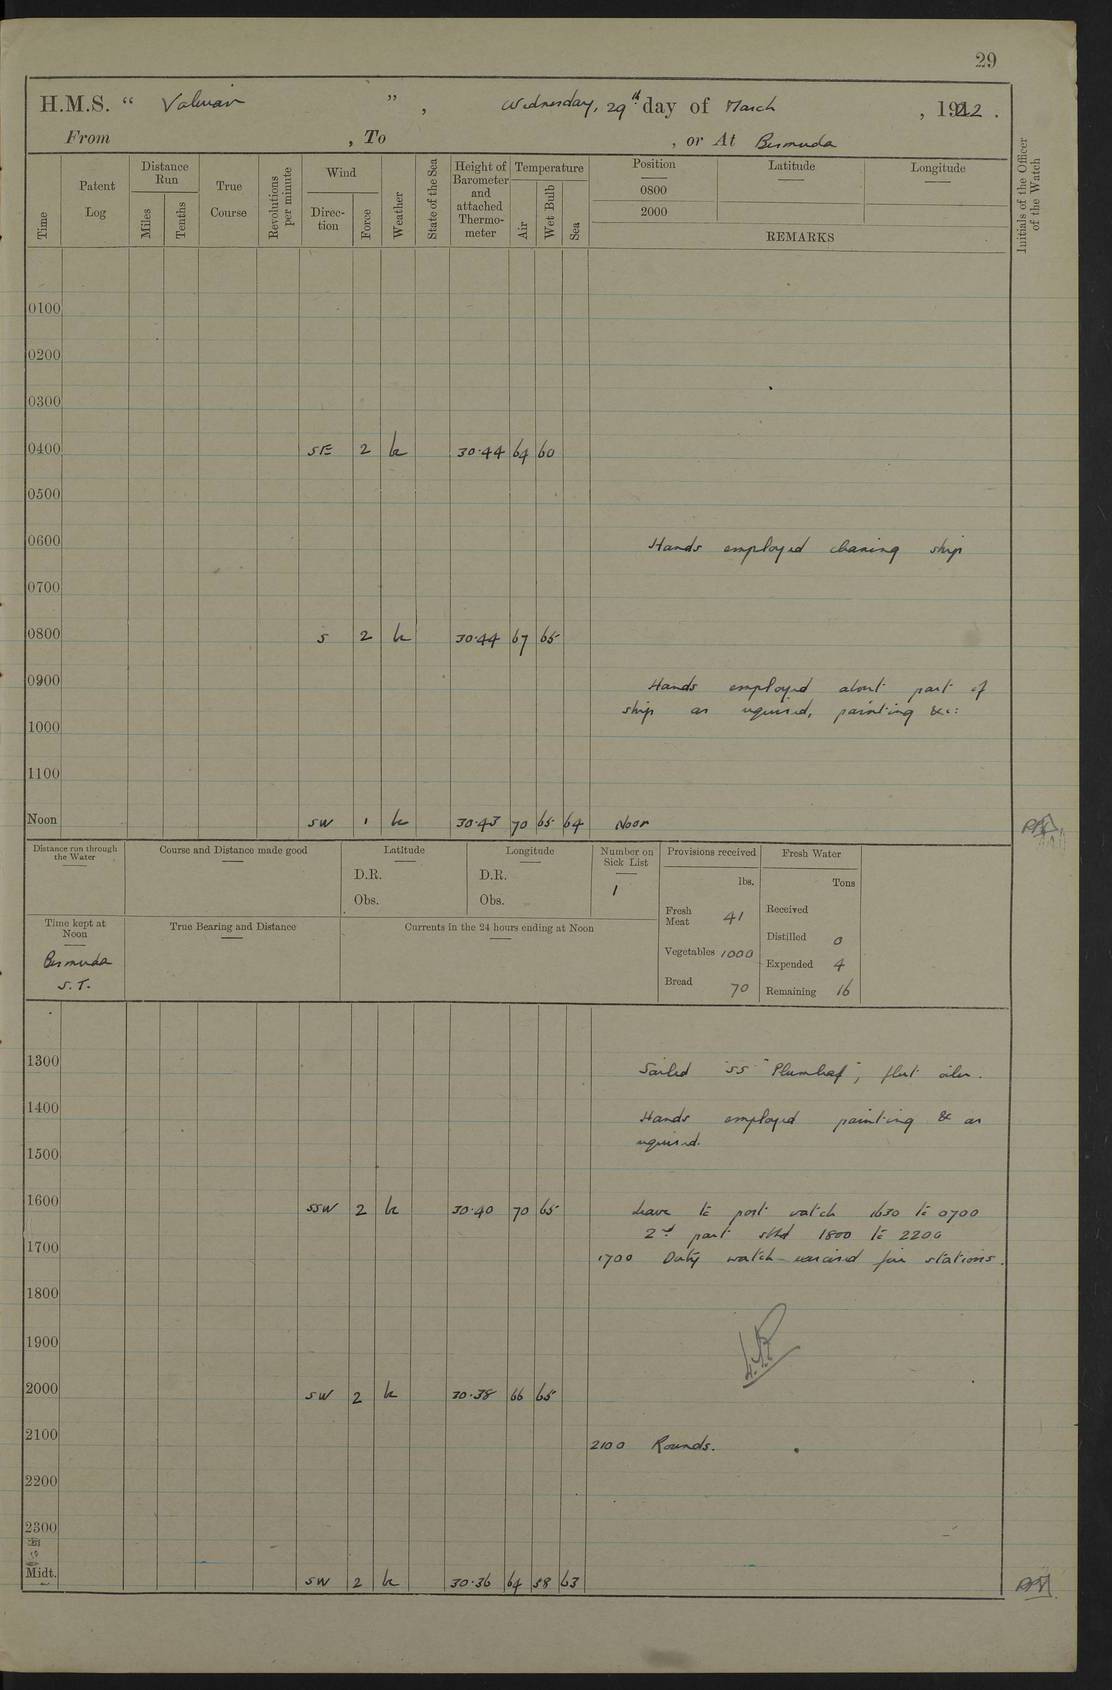 29
H.M.S. “ Valerian ” , Wednesday, 29th day of March , 1922 .
From , To , or At Bermuda
Time
Patent Log
Distance Run
Miles
Tenths
True Course
Revolutions per minute
Wind
Direc-tion
Force
Weather
State of the Sea
Height of Barometer and attached Thermo-meter
Temperature
Air
Wet Bulb
Sea
Position
Latitude
Longitude
0800
2000
REMARKS
Initials of the Officer of the Watch
0100
0200
0300
0400 SE 2 bc 30.44 64 60
0500
0600 Hands employed cleaning ship
0700
0800 S 2 bc 30.44 67 65
0900 Hands employed about part of
ship as required, painting &c:
1000
1100
Noon SW 1 bc 30.43 70 65 64 Noon
Distance run through the Water
Course and Distance made good
Latitude
D.R.
Obs.
Longitude
D.R.
Obs.
Number on Sick List
1
Provisions received
lbs.
Fresh Meat 41
Vegetables 1000
Bread 70
Fresh Water
Tons
Received
Distilled 0
Expended 4
Remaining 16
Time kept at Noon
Bermuda
S.T.
True Bearing and Distance
Currents in the 24 hours ending at Noon
1300 Sailed SS "Plumleaf", fleet oiler.
1400 Hands employed painting & as
required.
1500
1600 SSW 2 bc 30.40 70 65 Leave to port watch 1630 to 0700
2nd part stbd 1800 to 2200
1700 1700 Duty watch exercised fire stations.
1800
1900
2000 SW 2 bc 30.38 66 65
2100 2100 Rounds.
2200
2300
Midt. SW 2 bc 30.36 64 58 63